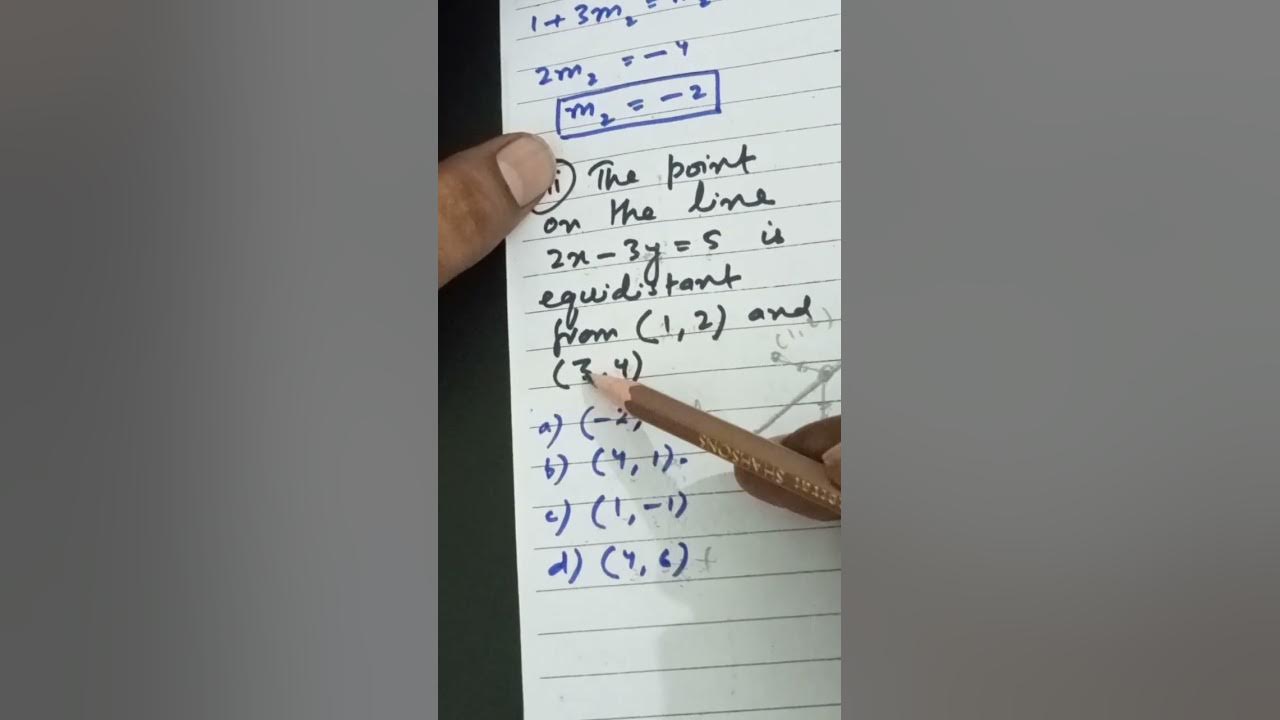 1 + 3m₂ =
2m₂ = -4
m₂ = -2
ii The point
on the line
2x - 3y = 5 is
equidistant
from (1, 2) and
(3, 4)
a) (-2,
b) (4, 1).
c) (1, -1)
d) (4, 6)